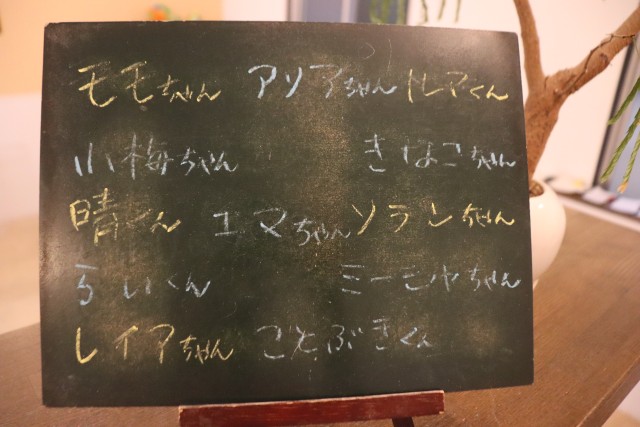 モモちゃん アリアちゃん トレマくん
小梅ちゃん きなこちゃん
晴くん エマちゃん ソランちゃん
らいくん ミーシャちゃん
レイアちゃん ことぶきくん